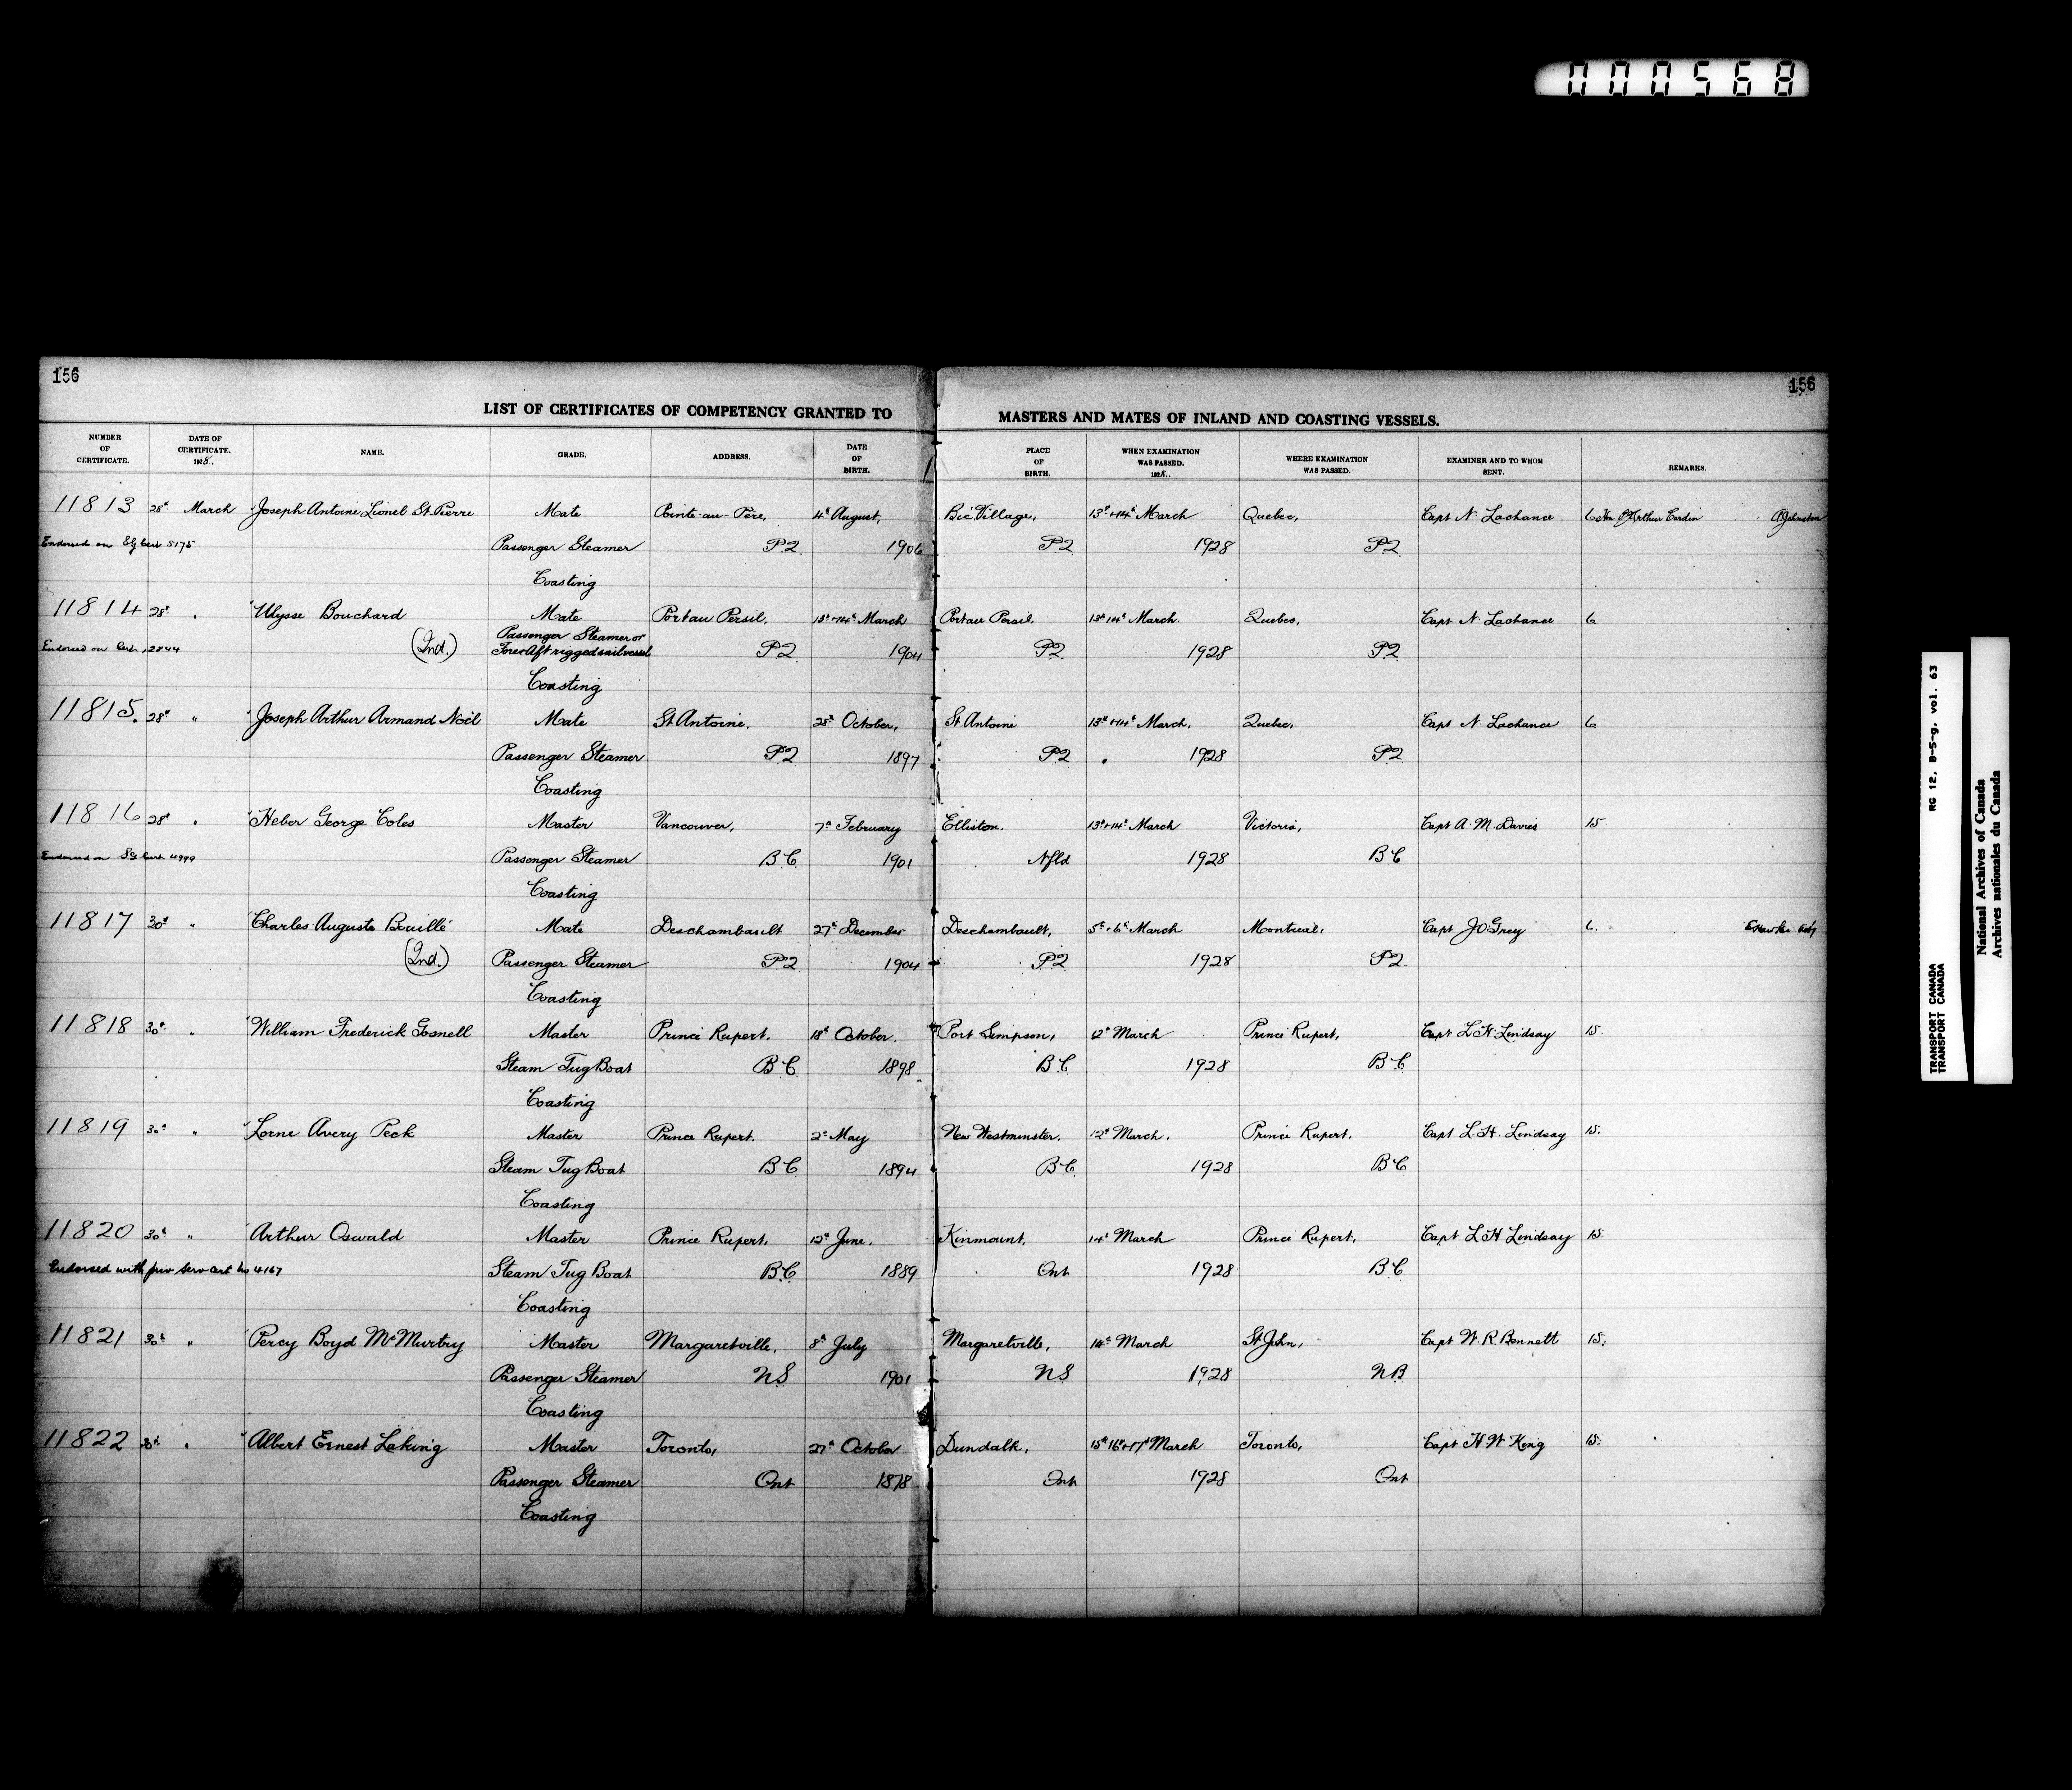 000568
156
156
LIST OF CERTIFICATES OF COMPETENCY GRANTED TO MASTERS AND MATES OF INLAND AND COASTING VESSELS.
NUMBER OF CERTIFICATE. DATE OF CERTIFICATE. 1928. NAME. GRADE. ADDRESS. DATE OF BIRTH. PLACE OF BIRTH. WHEN EXAMINATION WAS PASSED. 1928. WHERE EXAMINATION WAS PASSED. EXAMINER AND TO WHOM SENT. REMARKS.
11813 28th March Joseph Antoine Lionel St. Pierre Mate Pointe-au-Pere, 4th August, Bic Village, 13th + 14th March Quebec, Capt N. Lachance 6 Arthur Cardin A Johnston
Endorsed on Sg Cert 5175 Passenger Steamer P.Q. 1906 P.Q. 1928 P.Q.
Coasting
11814 28th " Ulysse Bouchard Mate Port au Persil, 13th + 14th March Port au Persil, 13th 14th March. Quebec, Capt N. Lachance 6
Passenger Steamer or
Endorsed on Cert 12844 (Ind.) Fore & Aft rigged sail vessel P.Q. 1904 P.Q. 1928 P.Q.
Coasting
11815. 28th " Joseph Arthur Armand Noël Mate St Antoine, 25th October, St Antoine 13th + 14th March, Quebec, Capt N. Lachance 6
Passenger Steamer P.Q. 1897 P.Q. 1928 P.Q.
Coasting
11816 28th " Heber George Coles Master Vancouver, 7th February Elliston. 13th + 14th March Victoria, Capt A. M. Davies 15
Endorsed on Sg Cert 4999 Passenger Steamer B.C. 1901 Nfld 1928 B.C.
Coasting
11817 30th " Charles Auguste Bouillé Mate Deschambault 27th December Deschambault, 5th + 6th March Montreal, Capt J O Grey 6.
(Ind.) Passenger Steamer P.Q. 1904 P.Q. 1928 P.Q.
Coasting
11818 30th " William Frederick Gosnell Master Prince Rupert, 18th October. Port Simpson, 12th March Prince Rupert, Capt L. H. Lindsay 15.
Steam Tug Boat B.C. 1898 B.C. 1928 B.C.
Coasting
11819 30th " Lorne Avery Peck Master Prince Rupert, 2nd May New Westminster, 12th March, Prince Rupert, Capt L. H. Lindsay 15.
Steam Tug Boat B.C. 1894 B.C. 1928 B.C.
Coasting
11820 30th " Arthur Oswald Master Prince Rupert, 12th June, Kinmount, 14th March Prince Rupert, Capt L H Lindsay 15
Endorsed with prov Serv cert No 4167 Steam Tug Boat B.C. 1889 Ont 1928 B.C.
Coasting
11821 30th " Percy Boyd McMurtry Master Margaretville, 8th July Margaretville, 14th March St John, Capt W. R. Bennett 15.
Passenger Steamer N.S. 1901 N.S. 1928 N.B.
Coasting
11822 30th " Albert Ernest Laking Master Toronto, 27th October Dundalk, 15th 16th + 17th March Toronto, Capt H. W. King 15.
Passenger Steamer Ont 1878 Ont 1928 Ont
Coasting
TRANSPORT CANADA RG 12, B-5-g, vol. 63
TRANSPORT CANADA
National Archives of Canada
Archives nationales du Canada